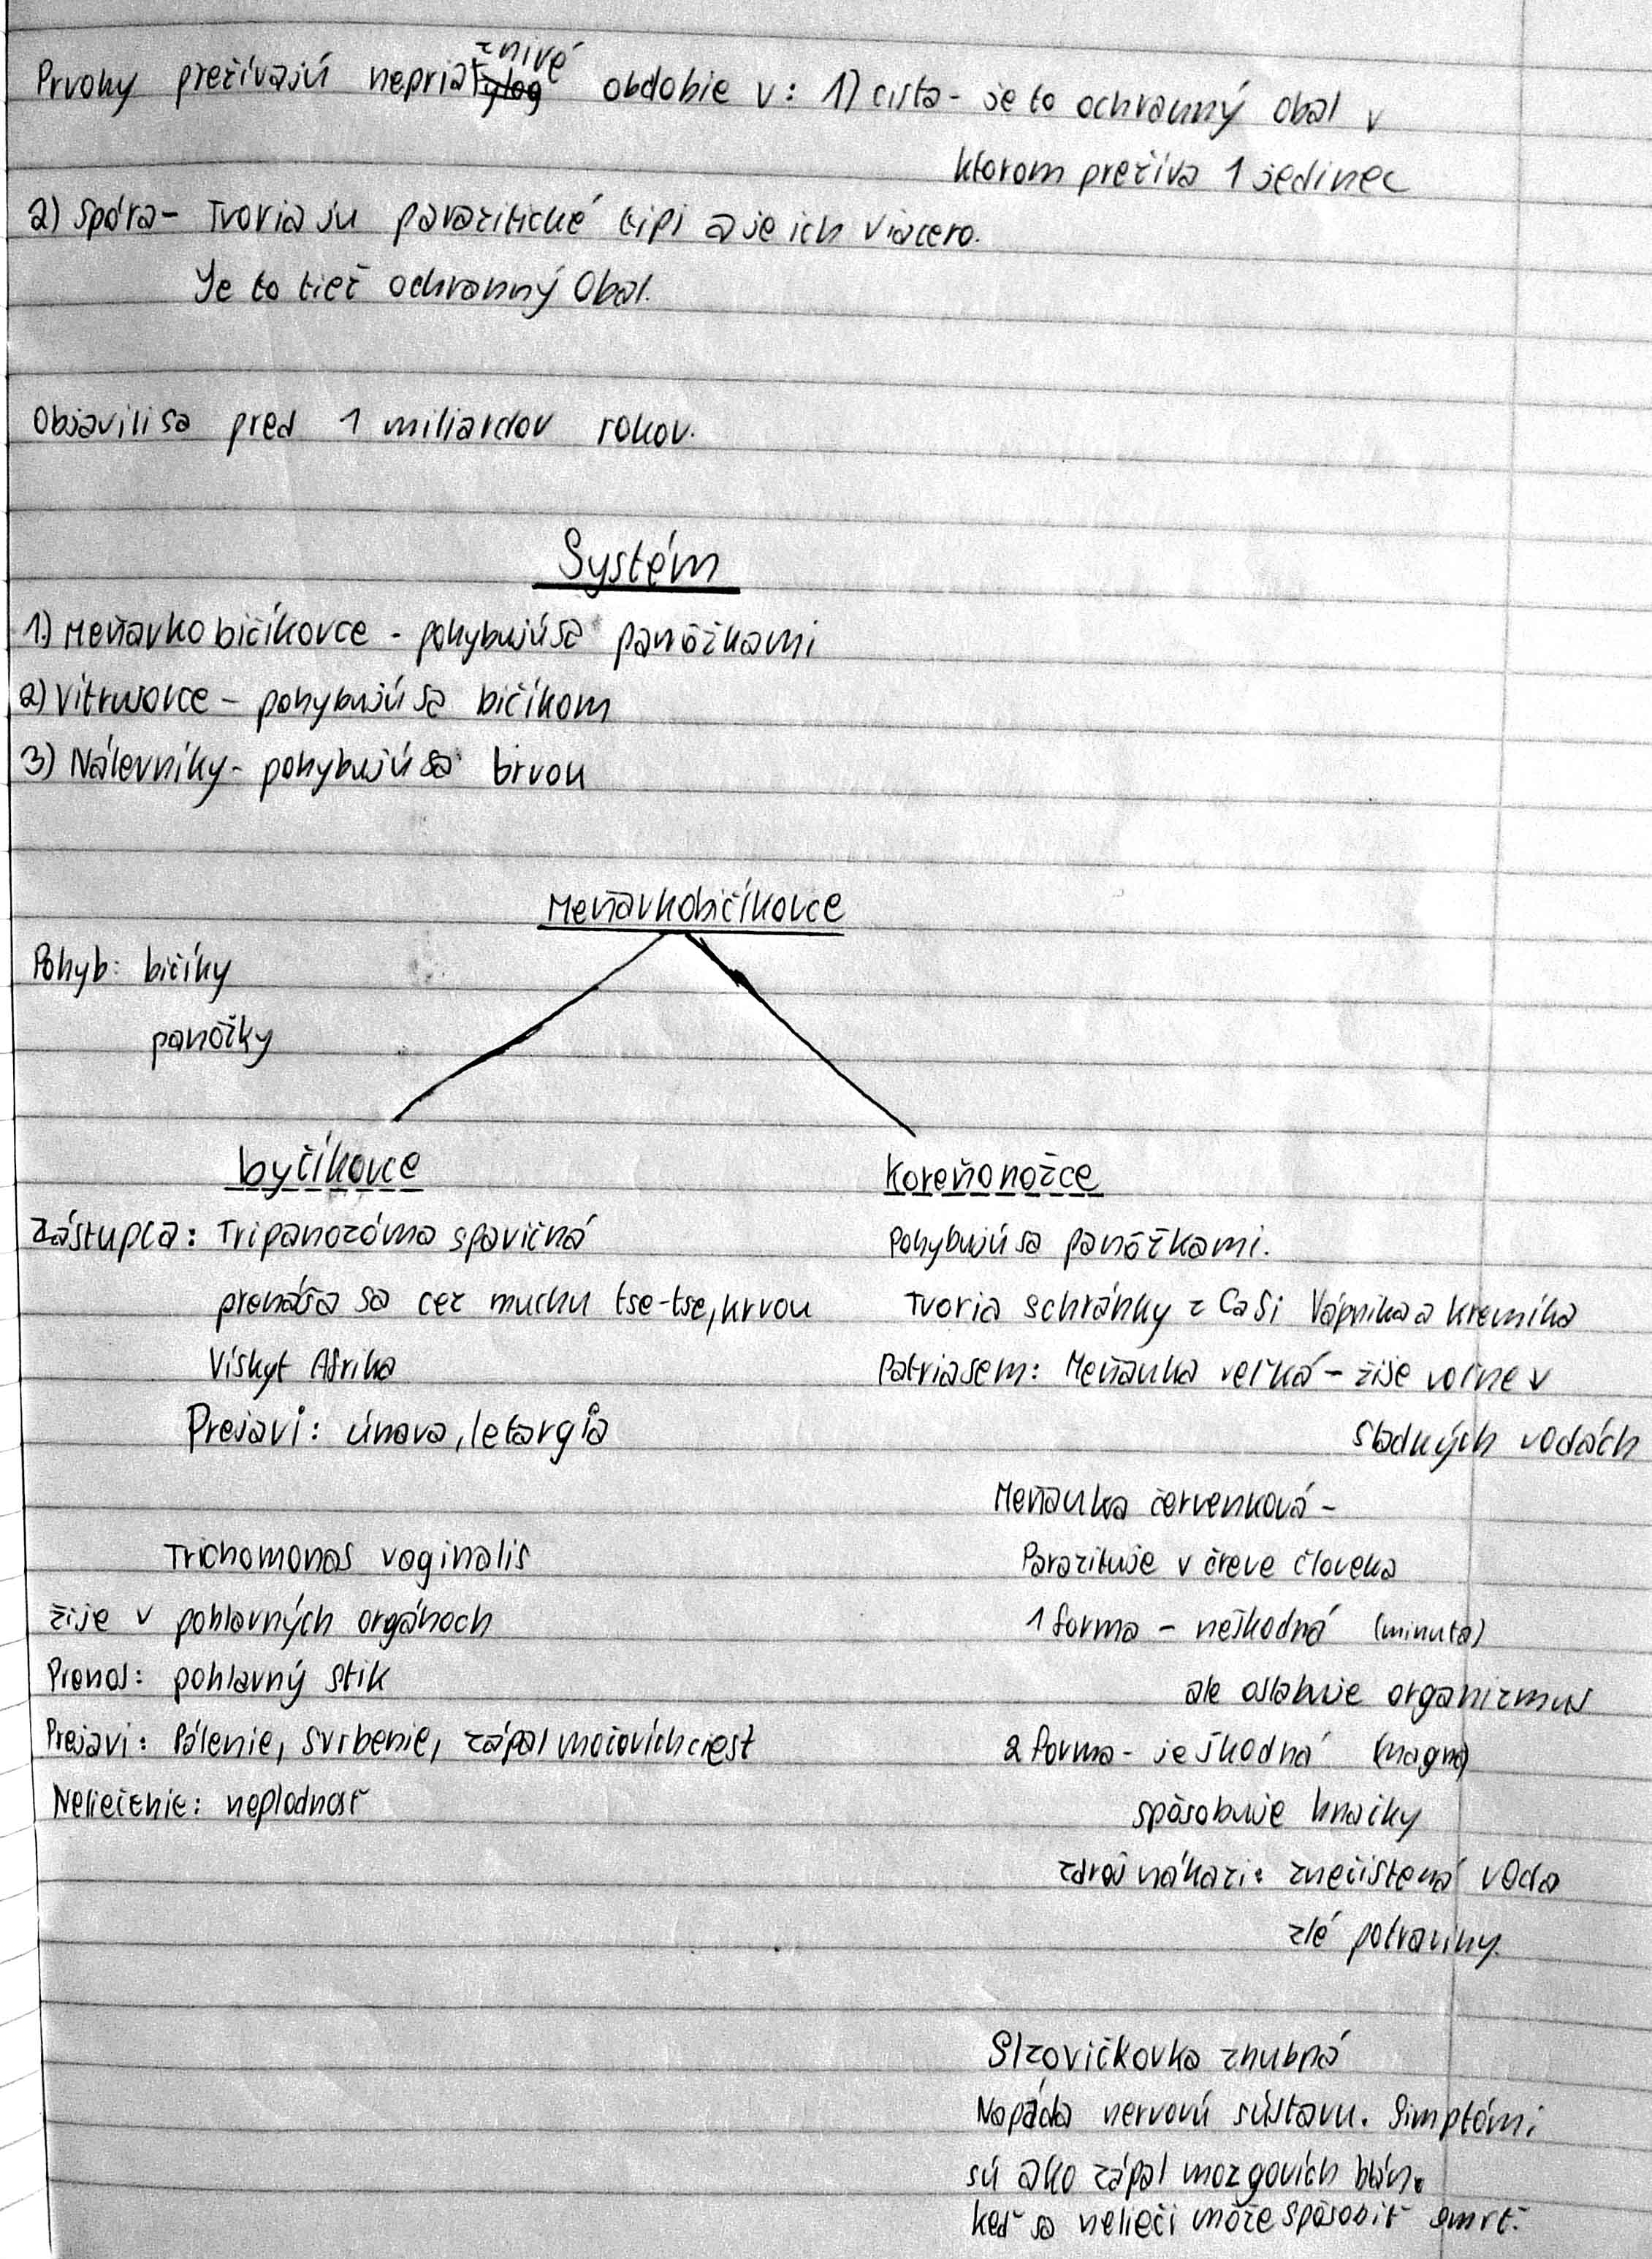 Prvoky prežívajú nepriaznivé obdobie v: 1) cista - je to ochranný obal v
ktorom prežíva 1 jedinec
2) Spóra - Tvoria ju parazitické tipi a je ich viacero.
Je to tiež ochranný Obal.
Objavili sa pred 1 miliardov rokov.
Systém
1.) Meňavkobičíkovce - pohybujú sa panôžkami
2) Vitrusovce - pohybujú sa bičíkom
3) Nálevníky - pohybujú sa brvou
Meňavkobičíkovce
Pohyb: bičíky
panôžky
byčíkovce
Zástupca: Tripanozóma spavičná
prenáša sa cez muchu tse-tse, krvou
Viskyt Afrika
Prejavi: únava, letargia
Trichomonas vaginalis
žije v pohlavných orgánoch
Prenos: pohlavný stik
Prejavi: Pálenie, svrbenie, zápal močovích ciest
Neliečenie: neplodnosť
Koreňonožce
Pohybujú sa panôžkami.
Tvoria schránky z Ca Si Vápnika a kremíka
Patria sem: Meňavka veľká - žije voľne v
sladkých vodách
Meňavka červenková -
Parazituje v čreve človeka
1 forma - neškodná (minuta)
ale oslabuje organizmus
2 forma - je škodná (magna)
spôsobuje hnačky
zdroj nákazi: znečistená voda
zlé potraviny.
Slzovičkovka zhubná
Napáda nervovú sústavu. Simptómi
sú ako zápal mozgovích blán.
keď sa nelieči môže spôsobiť smrť.